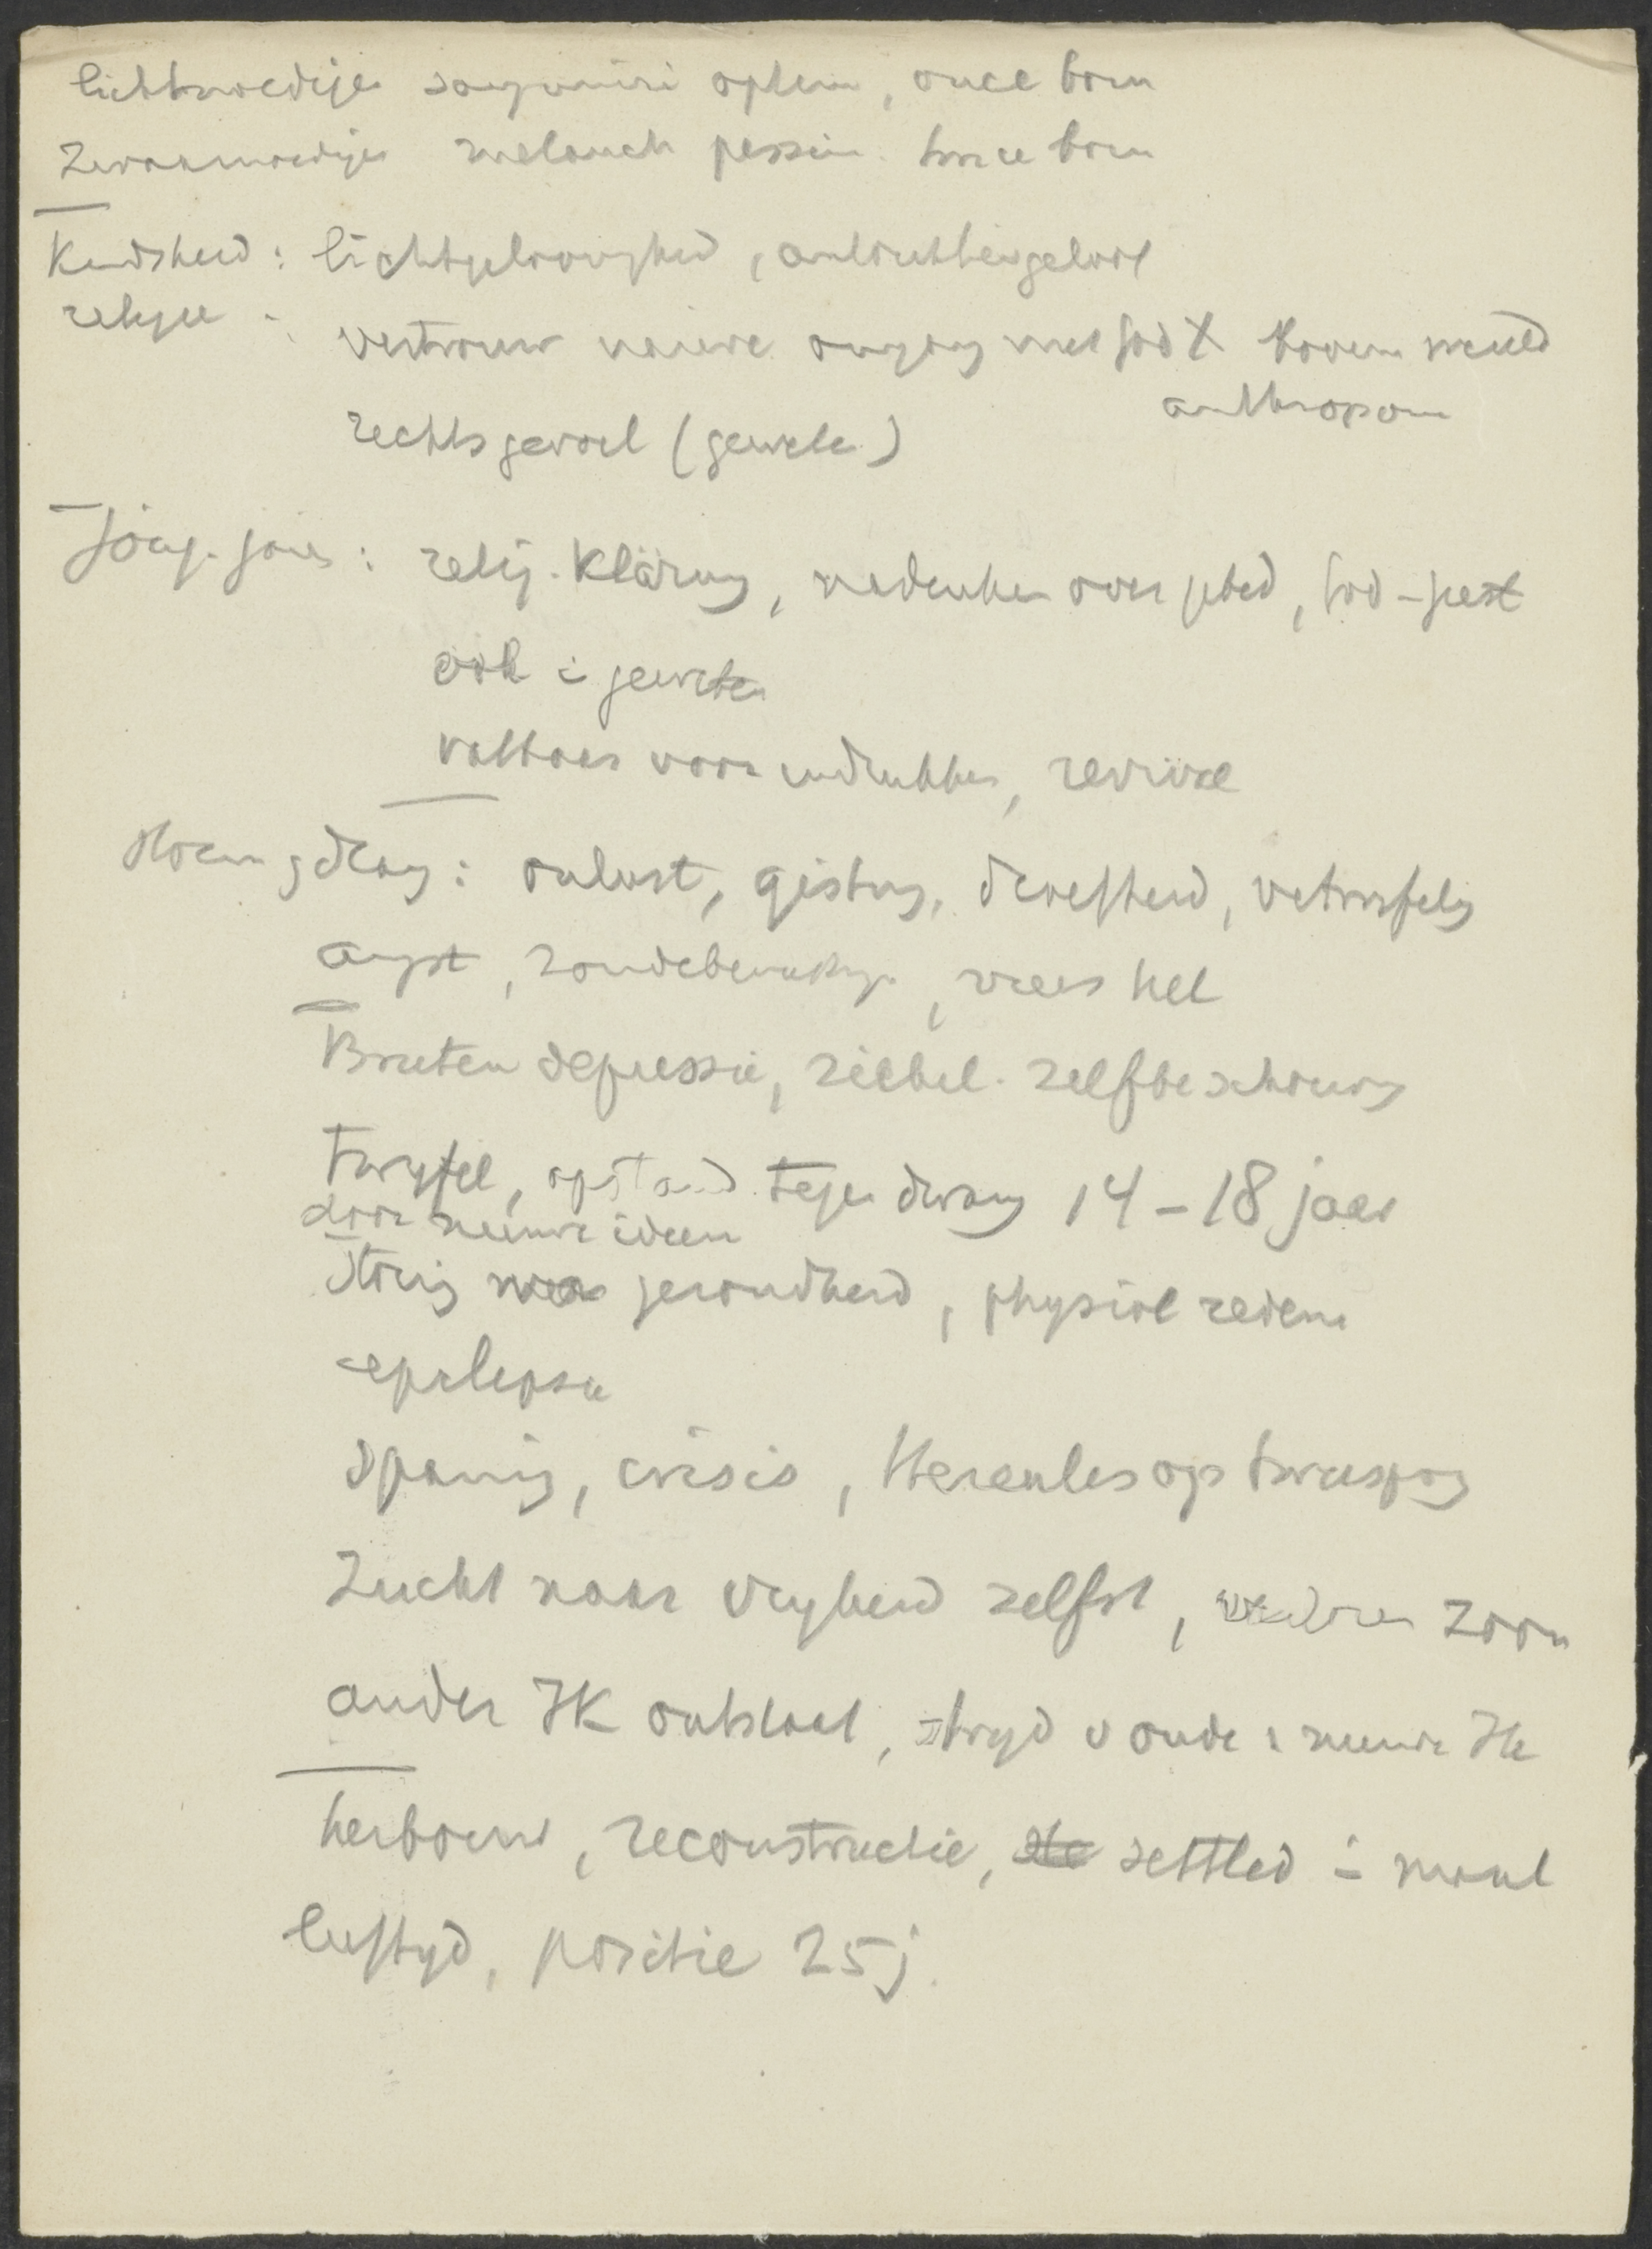 lichtmoedige sanguini optim, once born
Zwaarmoedige melanch pessim. twice born
Kindsheid : lichtgeloovigheid, autoriteitsgeloof
religie : vertrouw naieve omgang met God & boven wereld
anthropom
rechtsgevoel (geweten)
Jong. jaren : relig. Klärung, nadenken over gebed, God - geest
ook i geweten
vatbaar voor indrukken, revival
Storm & drang : onlust, gisting, droefheid, vertwijfeling
angst, zondebewustzijn, vrees hel
Brüten depressie, ziekel. zelfbeschouwing
twijfel, opstand tegen dwang 14 - 18 jaar
door nieuwe ideen
Storing gezondheid, physiol redenen
epilepsie
Spanning, crisis, Hercules op tweesprong
Zucht naar vrijheid zelfst, verloren zoon
ander IK ontstaat, strijd v oude & nieuwe Ik
herbouw, reconstructie, settled i maal
leeftijd, positie 25 j.